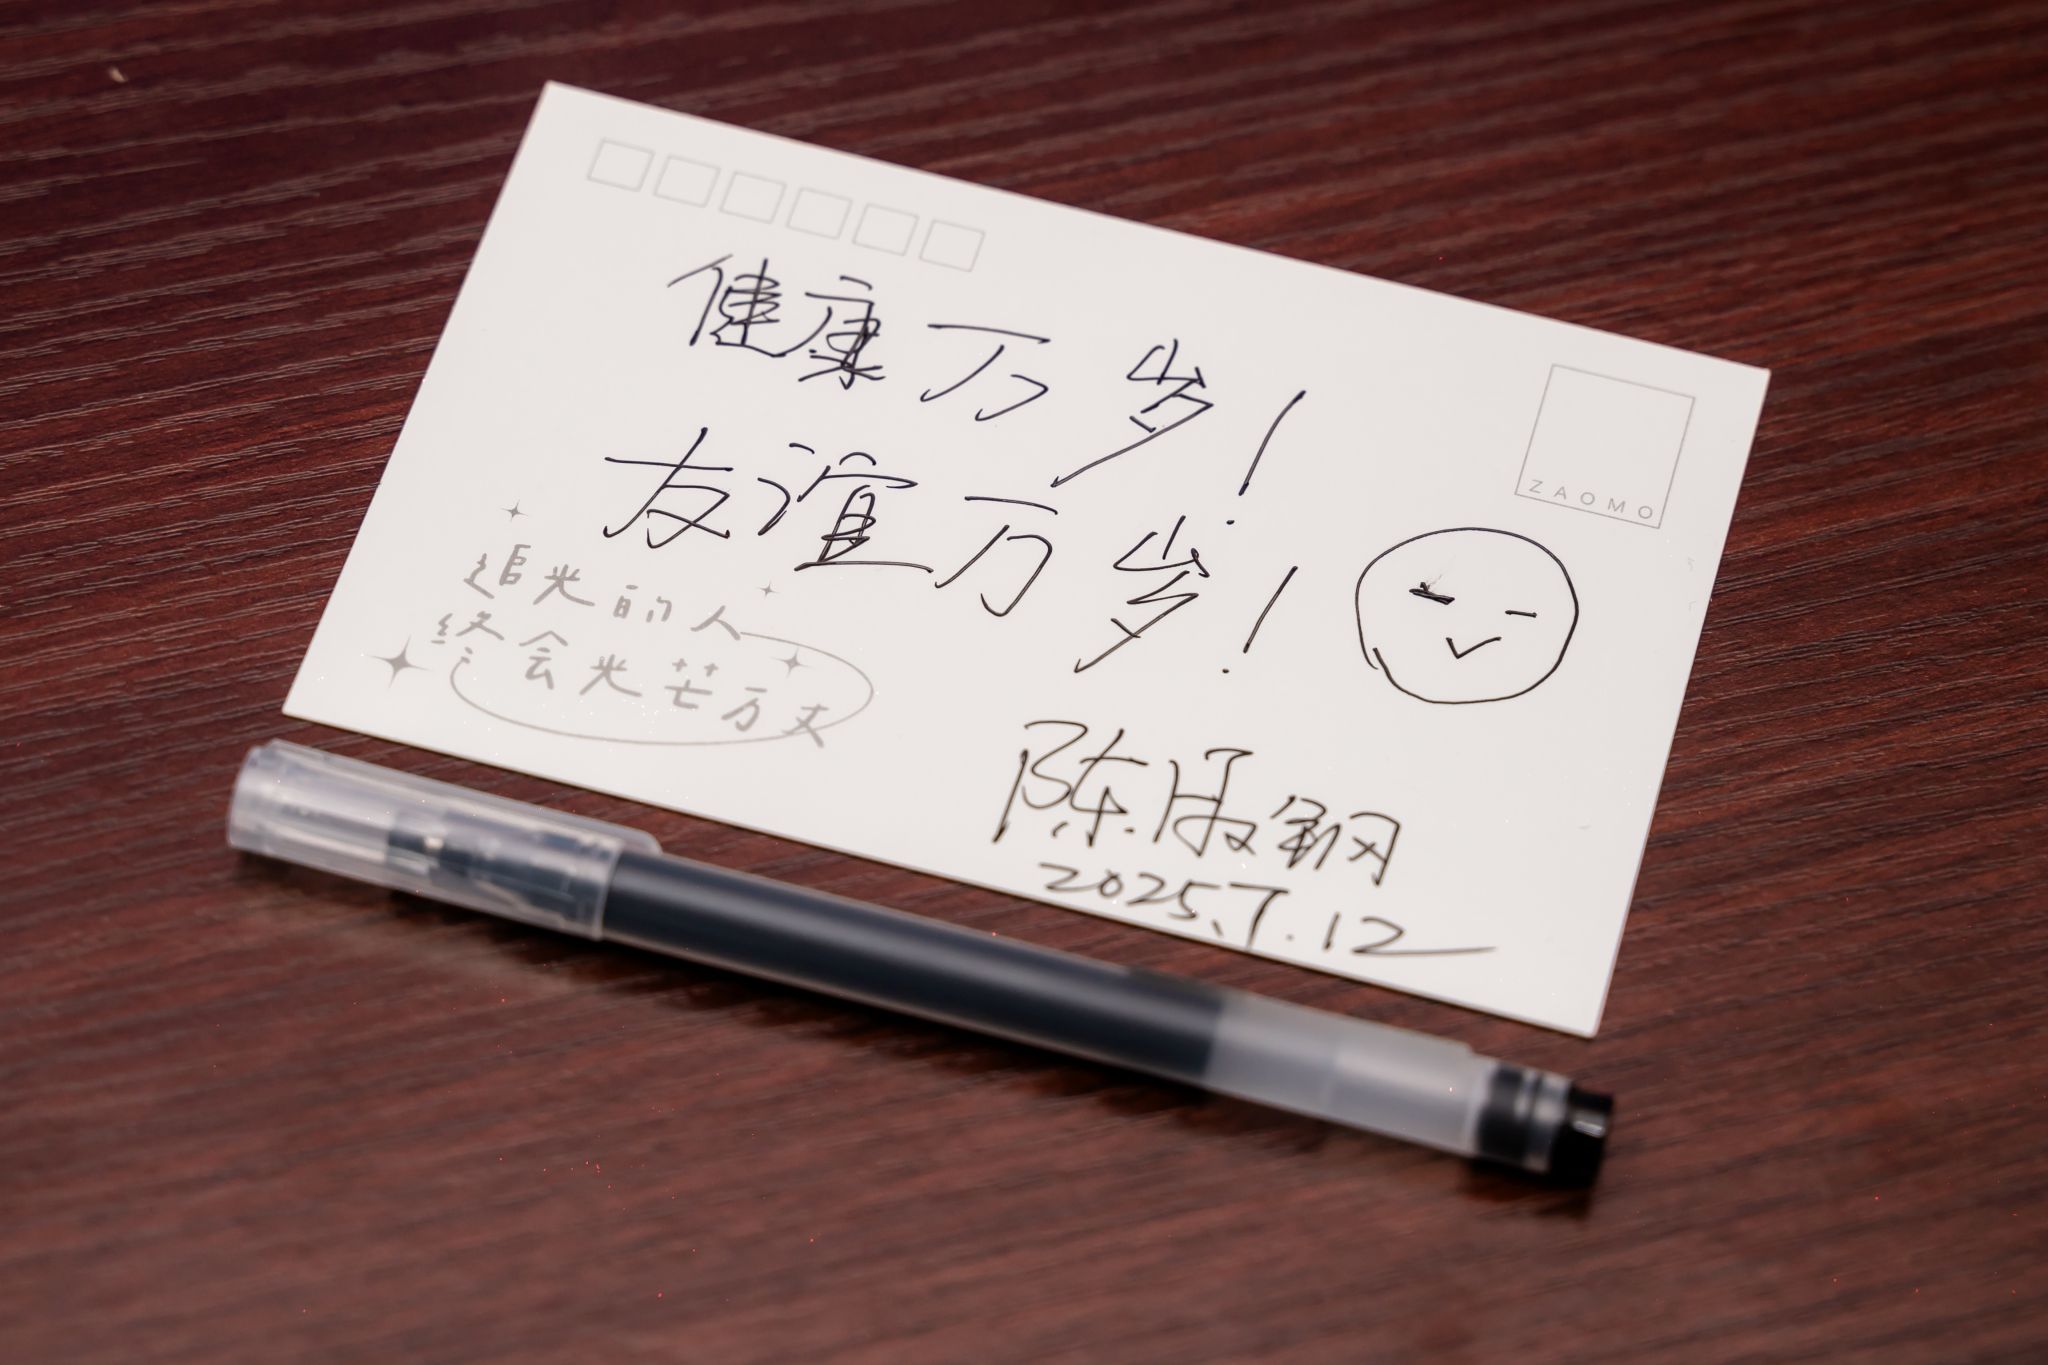 健康万岁!
友谊万岁!
ZAOMO
追光的人
终会光芒万丈
2025.7.12